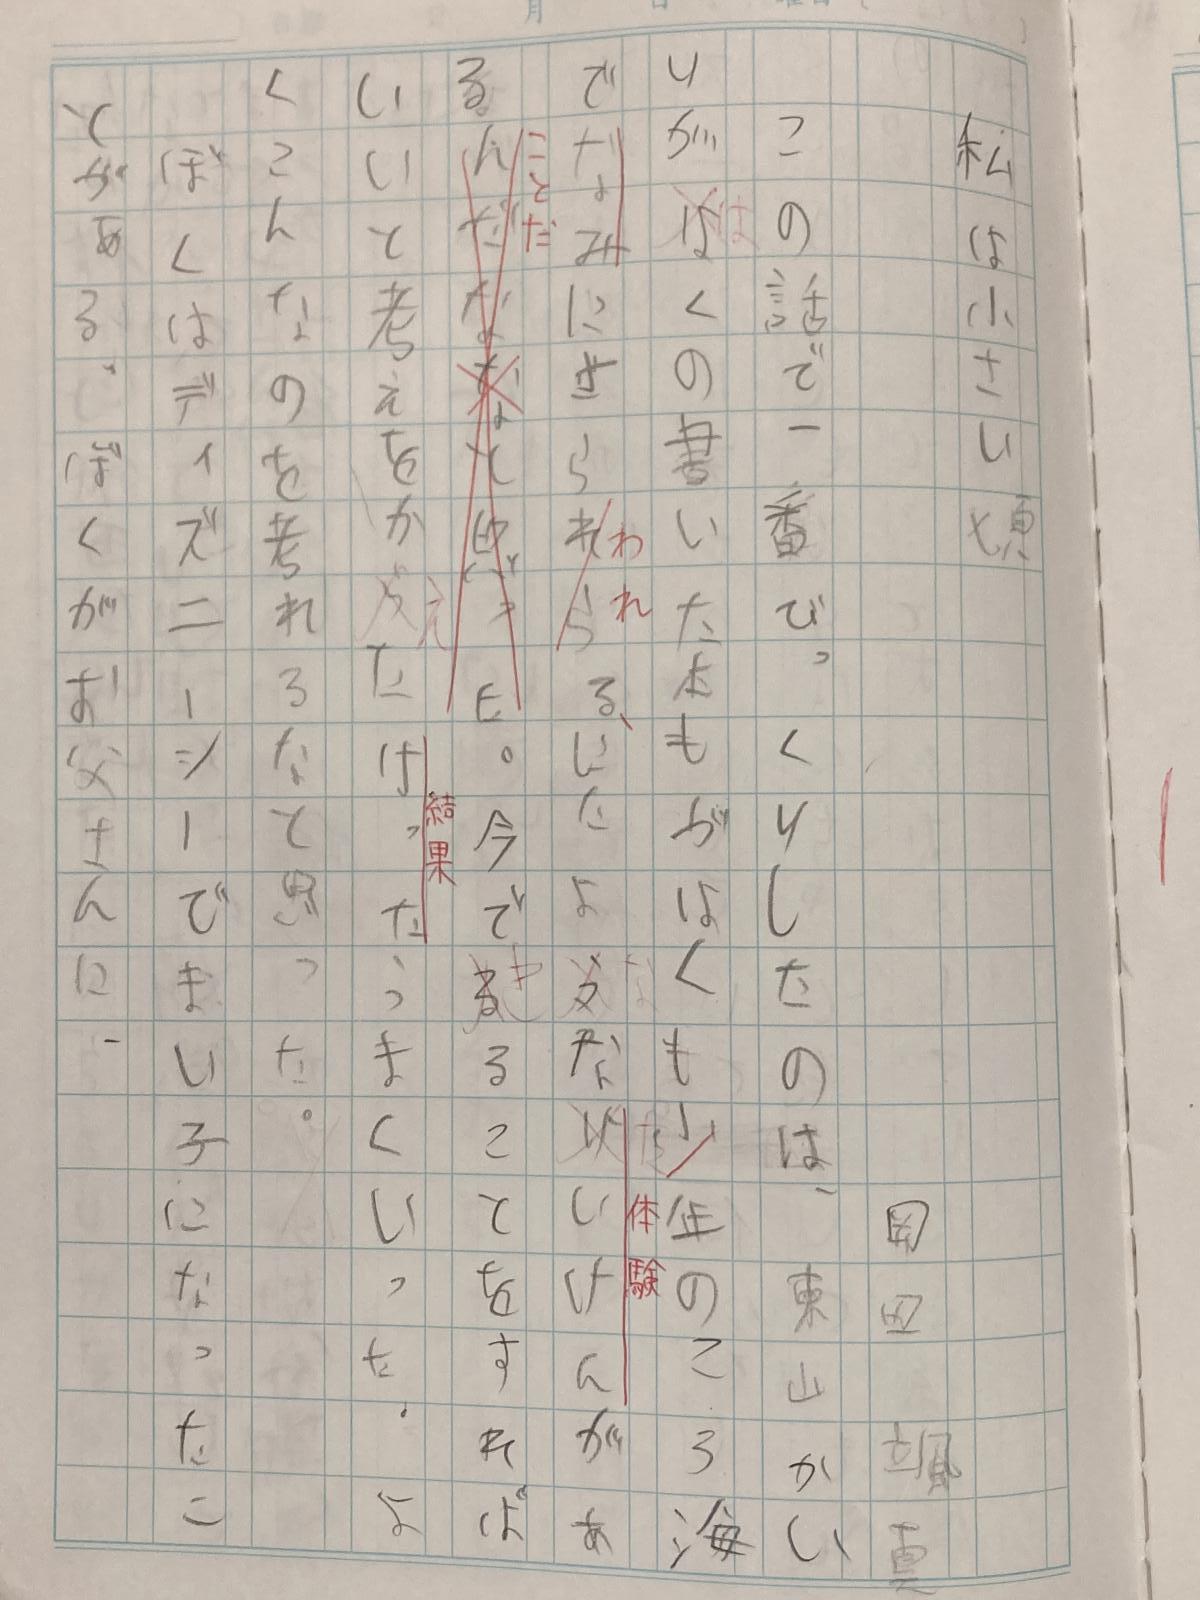 私は小さい頃
岡田 颯真
この話で一番びっくりしたのは、東山かい
りがぼくの書いた本もがはくも少年のころ海
でなみにさらわれらる、にたよ な いけんがあ
るんだな と思 った。今で きることをすれば
いいと考えをかえたけったらまくいった。よ
くこんなのを考れるなと思った。
ぼくはディズニーシーでまい子になったこ
とがある。ぼくがお父さんに
は
われ
ことだ
体験
え
結果